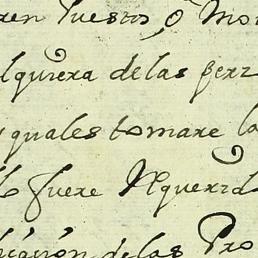 ren puestos, o Mon
lquiera de las perz
quales tomare la
lo fuere Requerid
licasion de las Pro